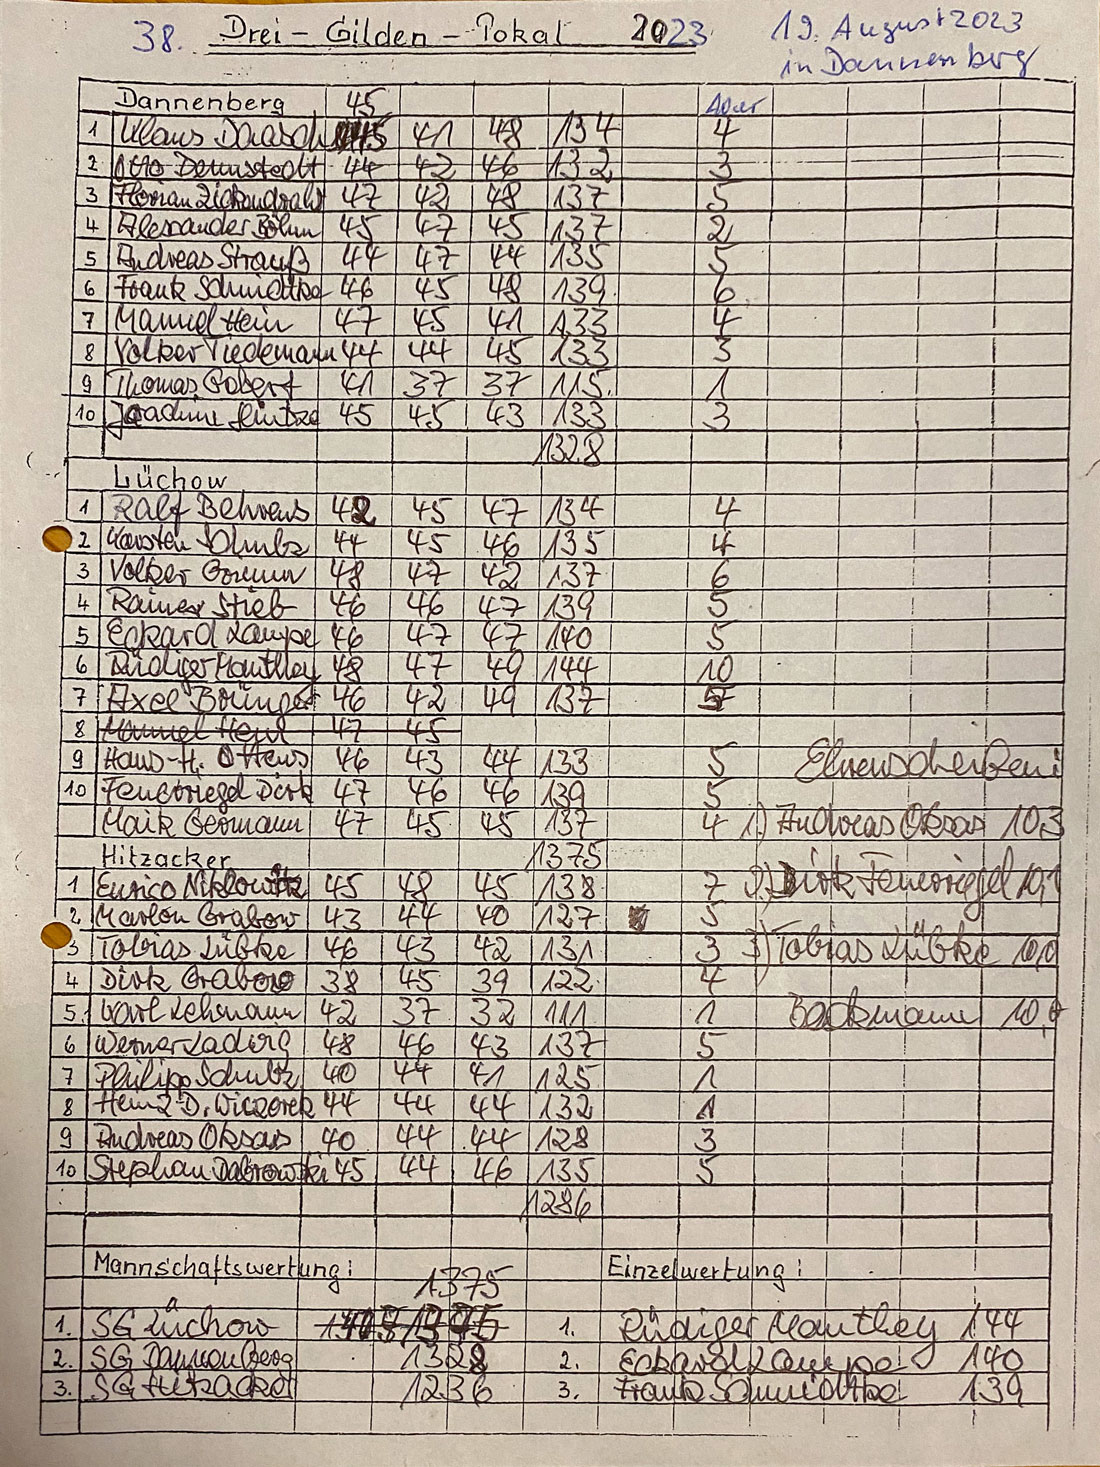 38. Drei - Gilden - Pokal 2023 19. August 2023
in Dannenberg
Dannenberg 45 10er
1 Klaus 45 41 48 134 4
2 Otto Dannstedt 44 42 46 132 3
3 Florian Zickendraht 47 42 48 137 5
4 Alexander Böhm 45 47 45 137 2
5 Andreas Strauß 44 47 44 135 5
6 Frank Schmidtke 46 45 48 139 6
7 Manuel Hein 47 45 41 133 4
8 Volker Tiedemann 44 44 45 133 3
9 Thomas Gobert 41 37 37 115 1
10 Joachim Hintze 45 45 43 133 3
1328
Lüchow
1 Ralf Behrens 42 45 47 134 4
2 Karsten Schulz 44 45 46 135 4
3 Volker 48 47 42 137 6
4 Rainer Stieb 46 46 47 139 5
5 Eckard Lampe 46 47 47 140 5
6 Rüdiger Mauthey 48 47 49 144 10
7 Axel 46 42 49 137 5
8 Manuel Hein 47 45
9 Hans-H. Ottens 46 43 44 133 5 Ehrenscheiben:
10 Feuerriegel Dirk 47 46 46 139 5
Maik Germann 47 45 45 137 4 1.) Andreas Oksas 10,3
Hitzacker 1375
1 Enrico Niklowitz 45 48 45 138 7 2.) Dirk Feuerriegel 10,1
2 Marlon Grabow 43 44 40 127 5
3 Tobias Lübke 46 43 42 131 3 3) Tobias Lübke 10,0
4 Dirk Grabow 38 45 39 122 4
5. Karl Lehmann 42 37 32 111 1 Backmann
6 Werner Ladwig 48 46 43 137 5
7 Philipp Schultz 40 44 41 125 1
8 Heinz D. Wiczorek 44 44 44 132 1
9 Andreas Oksas 40 44 44 128 3
10 Stephan Dabrowski 45 44 46 135 5
1286
Mannschaftswertung: 1375 Einzelwertung:
1. SG Lüchow 1. Rüdiger Mauthey 144
2. SG Dannenberg 1328 2. Eckard Lampe 140
3. SG Hitzacker 1236 3. Frank Schmidtke 139